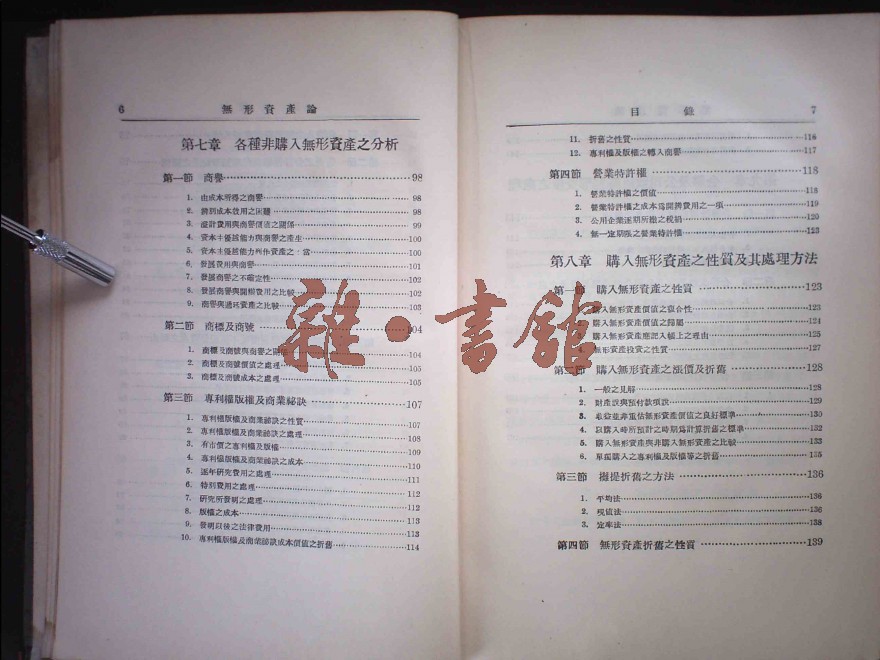 6 無形資產論
第七章 各種非購入無形資產之分析
第一節 商譽 98
1. 由成本所得之商譽 98
2. 辨別成本效用之困難 98
3. 設計費用與商譽價值之關係 99
4. 資本主優越能力與商譽之產生 100
5. 資本主優越能力列作資產之 當 100
6. 發展費用與商譽 101
7. 發展商譽之不確定性 102
8. 發展商譽與開辦費用之比較 102
9. 商譽與遞延資產之比較 103
第二節 商標及商號 104
1. 商標及商號與商譽之 104
2. 商標及商號價值之處理 105
3. 商標及商號成本之處理 105
第三節 專利權版權及商業祕訣 107
1. 專利權版權及商業祕訣之性質 107
2. 專利權版權及商業祕訣之處理 108
3. 有市價之專利權及版權 109
4. 專利權版權及商業祕訣之成本 110
5. 逐年研究費用之處理 111
6. 特別費用之處理 112
7. 研究所發明之處理 112
8. 版權之成本 113
9. 發明以後之法律費用 113
10. 專利權版權及商業祕訣成本價值之折舊 114
目錄 7
11. 折舊之性質 116
12. 專利權及版權之轉入商譽 117
第四節 營業特許權 118
1. 營業特許權之價值 118
2. 營業特許權之成本為開辦費用之一項 119
3. 公用企業逐期所繳之稅捐 120
4. 無一定期限之營業特許權 123
第八章 購入無形資產之性質及其處理方法
第一節 購入無形資產之性質 123
1. 購入無形資產價值之複合性 123
2. 購入無形資產價值之歸屬 124
3. 購入無形資產應記入帳上之理由 125
4. 無形資產投資之性質 127
第二節 購入無形資產之漲價及折舊 128
1. 一般之見解 128
2. 財產說與預付款項說 129
3. 收益並非重估無形資產價值之良好標準 130
4. 以購入時所預計之時期為計算折舊之標準 132
5. 購入無形資產與非購入無形資產之比較 133
6. 單獨購入之專利權及版權等之折舊 135
第三節 攤提折舊之方法 136
1. 平均法 136
2. 現值法 136
3. 定率法 138
第四節 無形資產折舊之性質 139
雜·書館